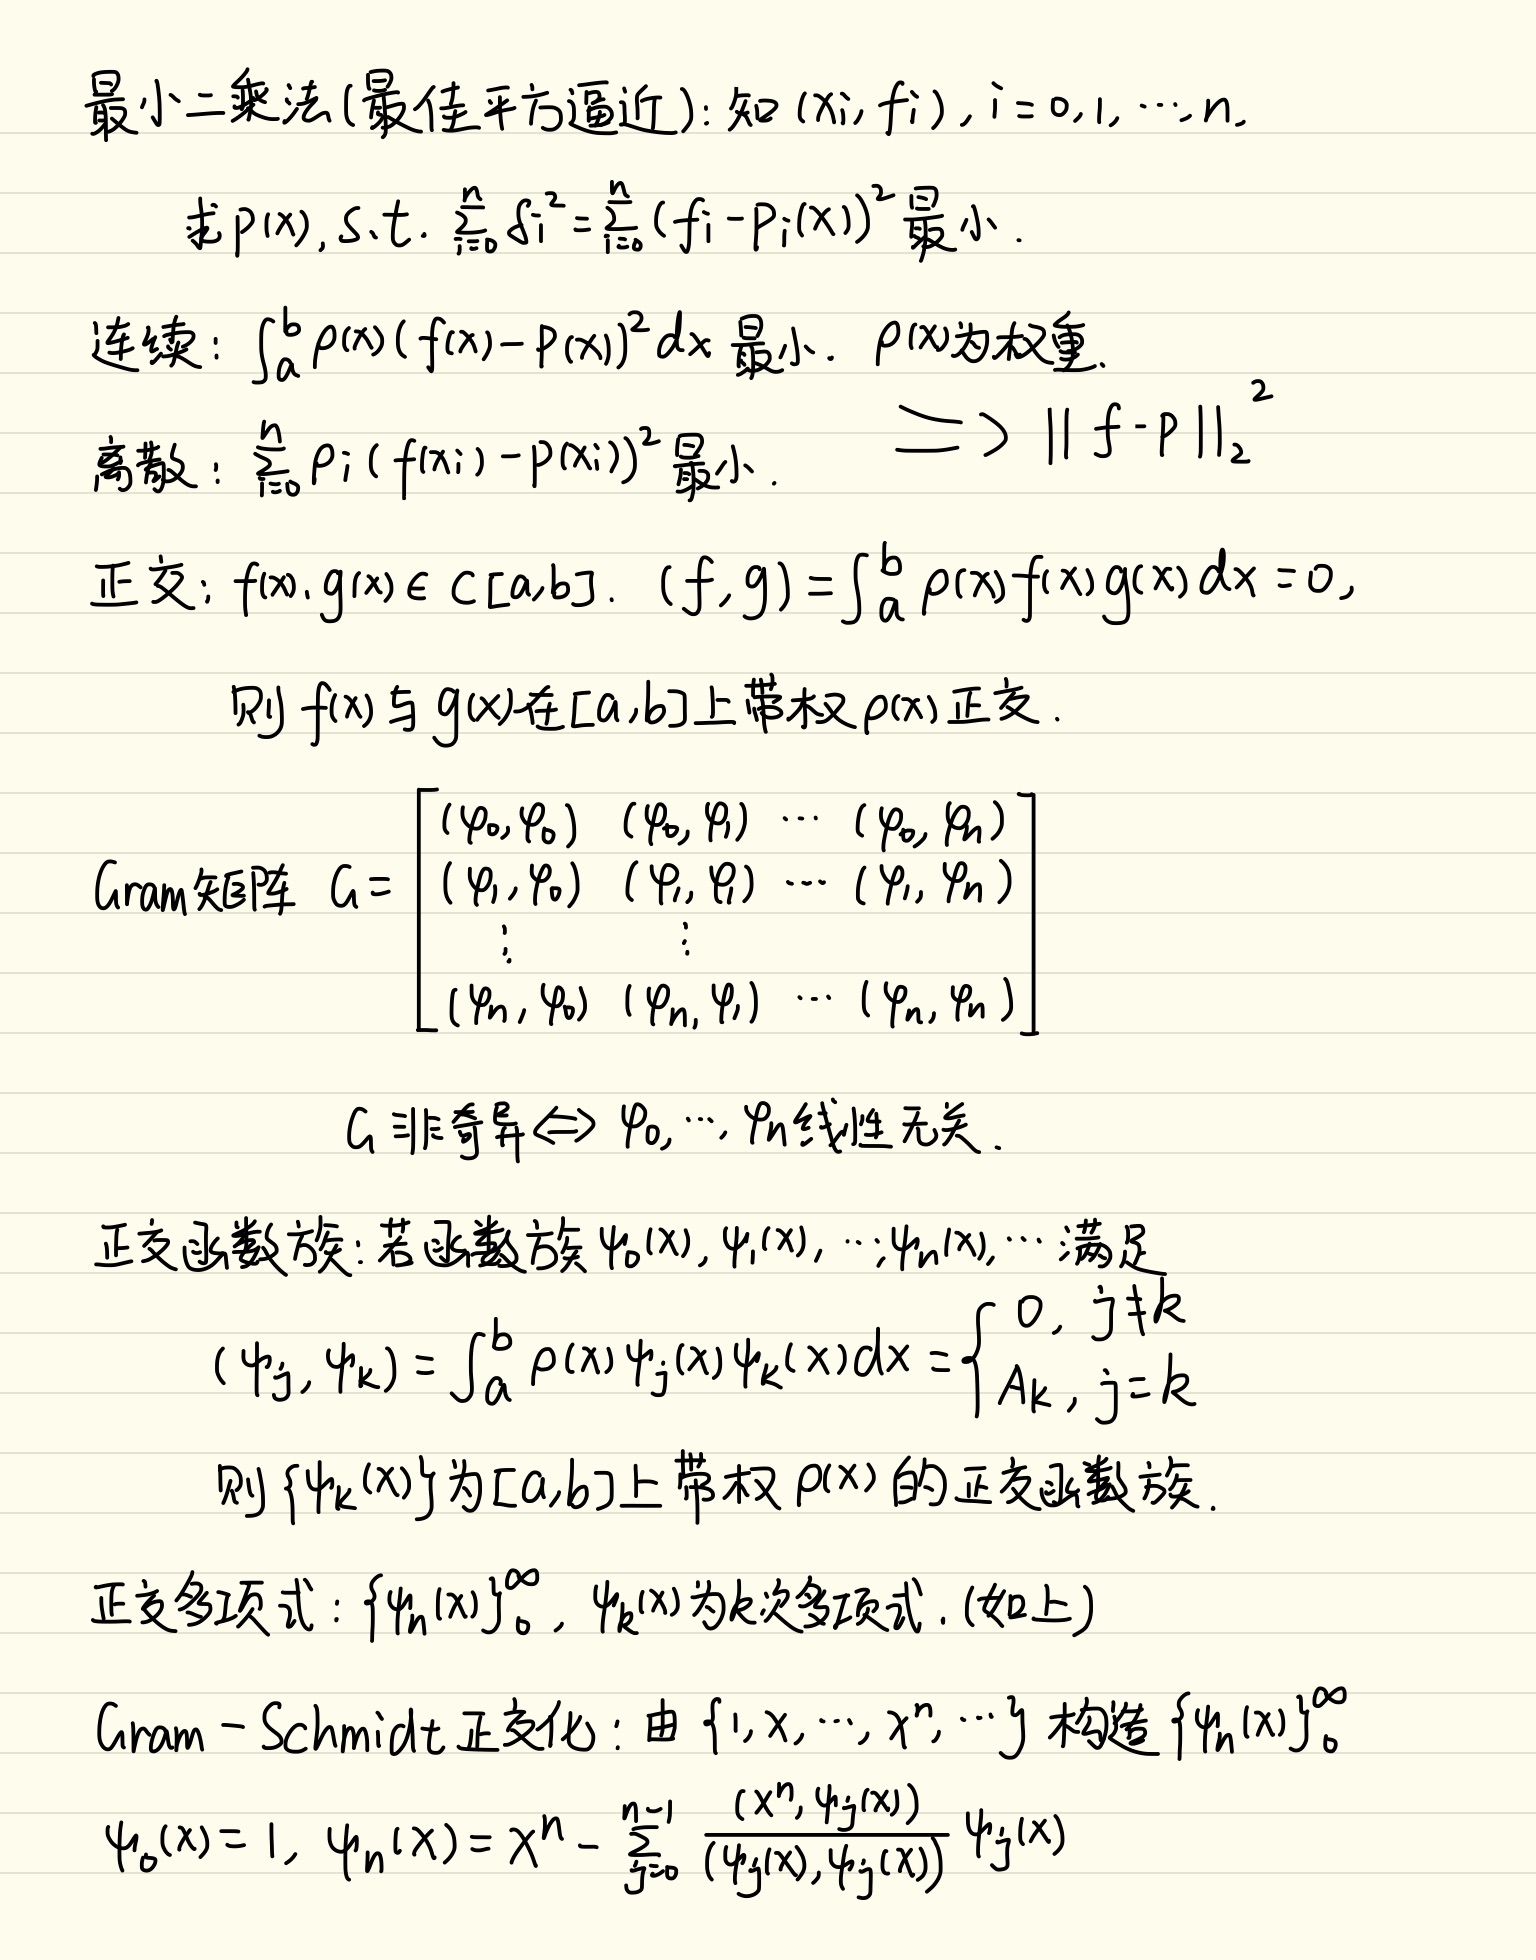 最小二乘法(最佳平方逼近): 知 (xi, fi), i = 0, 1, …, n.
求 p(x), s.t. \sum_{i=0}^{n} δi^2 = \sum_{i=0}^{n} (fi - pi(x))^2 最小.
连续: \int_a^b ρ(x)(f(x) - p(x))^2 dx 最小. ρ(x)为权重.
离散: \sum_{i=0}^{n} ρi (f(xi) - p(xi))^2 最小.
=> ||f - p||_2^2
正交: f(x), g(x) ∈ C[a,b]. (f, g) = \int_a^b ρ(x) f(x) g(x) dx = 0,
则 f(x) 与 g(x) 在[a,b]上带权ρ(x)正交.
(φ0, φ0) (φ0, φ1) … (φ0, φn)
Gram矩阵 G = (φ1, φ0) (φ1, φ1) … (φ1, φn)
⋮ ⋮
(φn, φ0) (φn, φ1) … (φn, φn)
G 非奇异 <=> φ0, …, φn线性无关.
正交函数族: 若函数族 ψ0(x), ψ1(x), …, ψn(x), … 满足
(ψj, ψk) = \int_a^b ρ(x) ψj(x) ψk(x) dx = { 0, j≠k
Ak, j=k
则{ψk(x)}为[a,b]上带权 ρ(x) 的正交函数族.
正交多项式: {ψn(x)}_0^∞, ψk(x)为k次多项式. (如上)
Gram-Schmidt正交化: 由 {1, x, …, x^n, …} 构造 {ψn(x)}_0^∞
ψ0(x) = 1, ψn(x) = x^n - \sum_{j=0}^{n-1} \frac{(x^n, ψj(x))}{(ψj(x), ψj(x))} ψj(x)